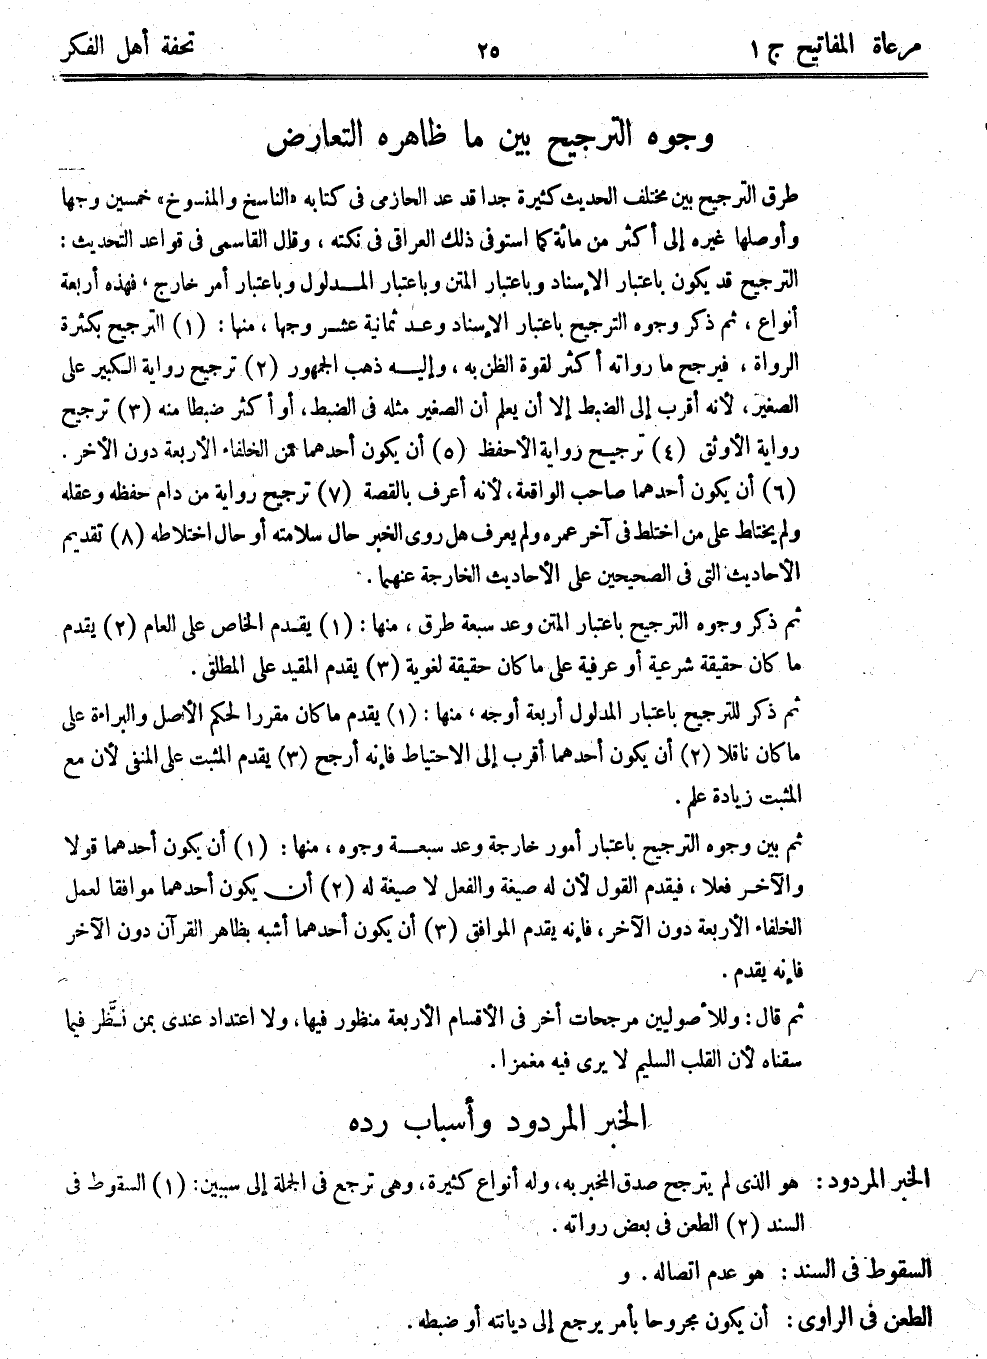 مرعاة المفاتيح ج ١ ٢٥ تحفة أهل الفكر
وجوه الترجيح بين ما ظاهره التعارض
طرق الترجيح بين مختلف الحديث كثيرة جدا قد عد الحازمى فى كتابه «الناسخ والمنسوخ» خمسين وجها
وأوصلها غيره إلى أكثر من مائة كما استوفى ذلك العراقى فى نكته ، وقال القاسمى فى قواعد التحديث :
الترجيح قد يكون باعتبار الإسناد وباعتبار المتن وباعتبار المـدلول وباعتبار أمر خارج ، فهذه أربعة
أنواع ، ثم ذكر وجوه الترجيح باعتبار الإسناد وعـد ثمانية عشـر وجها ، منها : (١) الترجيح بكثرة
الرواة ، فيرجح ما رواته أكثر لقوة الظن به ، وإليـه ذهب الجمهور (٢) ترجيح رواية الكبير على
الصغير، لأنه أقرب إلى الضبط إلا أن يعلم أن الصغير مثله فى الضبط، أو أكثر ضبطا منه (٣) ترجيح
رواية الأوثق (٤) ترجيـح رواية الأحفظ (٥) أن يكون أحدهما من الخلفاء الأربعة دون الآخر .
(٦) أن يكون أحدهما صاحب الواقعة، لأنه أعرف بالقصة (٧) ترجيح رواية من دام حفظه وعقله
ولم يختلط على من اختلط فى آخر عمره ولم يعرف هل روى الخبر حال سلامته أو حال اختلاطه (٨) تقديم
الأحاديث التى فى الصحيحين على الأحاديث الخارجة عنهما .
ثم ذكر وجوه الترجيح باعتبار المتن وعد سبعة طرق ، منها : (١) يقـدم الخاص على العام (٢) يقدم
ما كان حقيقة شرعية أو عرفية على ما كان حقيقة لغوية (٣) يقدم المقيد على المطلق .
ثم ذكر للترجيح باعتبار المدلول أربعة أوجه ، منها : (١) يقدم ما كان مقررا لحكم الأصل والبراءة على
ما كان ناقلا (٢) أن يكون أحدهما أقرب إلى الاحتياط فإنه أرجح (٣) يقدم المثبت على المنفى لأن مع
المثبت زيادة علم .
ثم بين وجوه الترجيح باعتبار أمور خارجة وعد سبعـة وجوه ، منها : (١) أن يكون أحدهما قولا
والآخـر فعلا ، فيقدم القول لأن له صيغة والفعل لا صيغة له (٢) أن يكون أحدهما موافقا لعمل
الخلفاء الأربعة دون الآخر ، فإنه يقدم الموافق (٣) أن يكون أحدهما أشبه بظاهر القرآن دون الآخر
فإنه يقدم .
ثم قال : وللأصوليين مرجحات أخر فى الأقسام الأربعة منظور فيها ، ولا اعتداد عندى بمن نـظر فيما
سقناه لأن القلب السليم لا يرى فيه مغمزا .
الخبر المردود وأسباب رده
الخبر المردود : هو الذى لم يترجح صدق المخبر به ، وله أنواع كثيرة ، وهى ترجع فى الجملة إلى سببين : (١) السقوط فى
السند (٢) الطعن فى بعض رواته .
السقوط فى السند : هو عدم اتصاله . و
الطعن فى الراوى : أن يكون مجروحا بأمر يرجع إلى ديانته أو ضبطه .